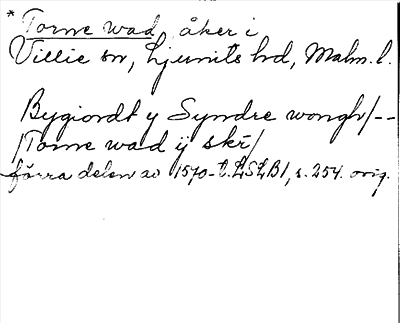 * Torne wad, åker i
Villie sn, Ljunits hd, Malm. l.
Bygiordt y Syndre wongh/--
/Torne wad ij skr̄/
förra delen av 1570-t. LSLB1, s. 254. orig.